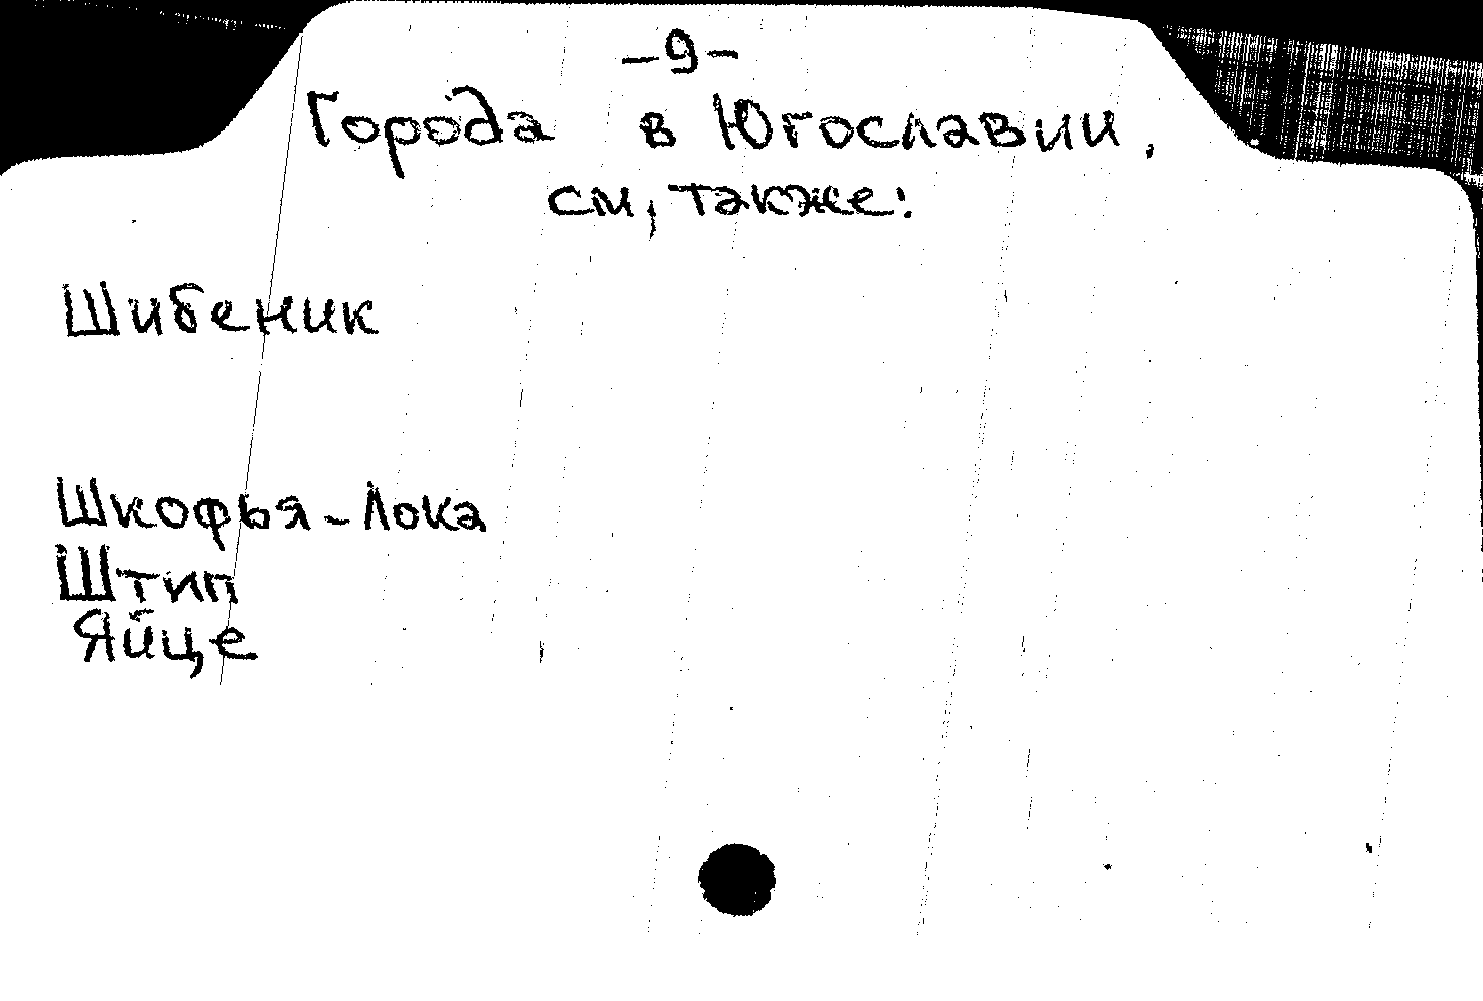 -9-
Города в Югославии.
см, также:
Шибеник
Шкофья-Лока
Штип
Яйце